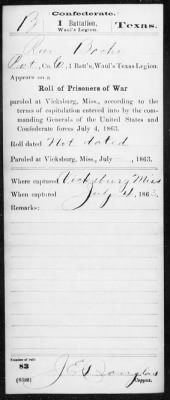 Confederate.
B 1 Battalion, Texas.
Waul's Legion.
Pvt, Co. 1 Batt'n, Waul's Texas Legion.
Appears on a
Roll of Prisoners of War
paroled at Vicksburg, Miss., according to the
terms of capitulation entered into by the com-
manding Generals of the United States and
Confederate forces July 4, 1863.
Roll dated Not dated
Paroled at Vicksburg, Miss., July , 1863.
Where captured Vicksburg Miss
When captured July 4, 1863.
Remarks:
Number of roll:
83
(639b) Copyist.